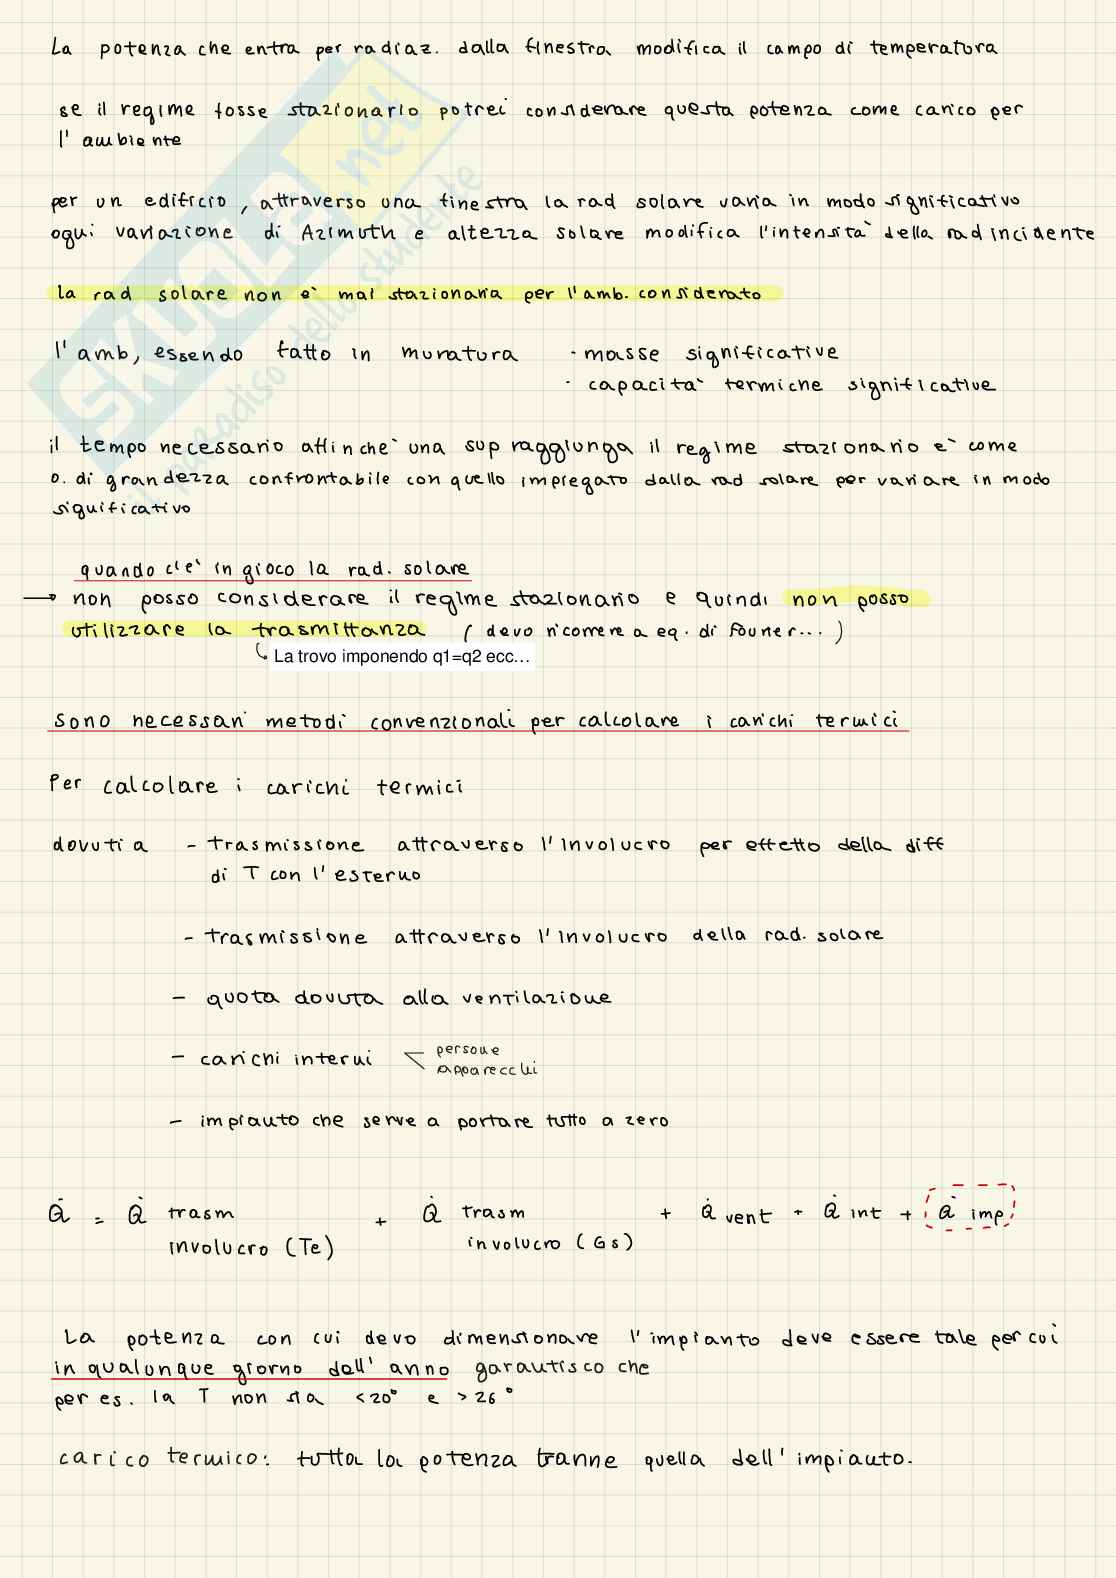 La potenza che entra per radiaz. dalla finestra modifica il campo di temperatura
se il regime fosse stazionario potrei considerare questa potenza come carico per
l'ambiente
per un edificio, attraverso una finestra la rad solare varia in modo significativo
ogni variazione di Azimuth e altezza solare modifica l'intensità della rad incidente
la rad solare non è mai stazionaria per l'amb. considerato
l'amb, essendo fatto in muratura · masse significative
· capacità termiche significative
il tempo necessario affinchè una sup raggiunga il regime stazionario è come
o. di grandezza confrontabile con quello impiegato dalla rad solare per variare in modo
significativo
quando c'è in gioco la rad. solare
→ non posso considerare il regime stazionario e quindi non posso
utilizzare la trasmittanza (devo ricorrere a eq. di Fourier...)
La trovo imponendo q1=q2 ecc...
sono necessari metodi convenzionali per calcolare i carichi termici
Per calcolare i carichi termici
dovuti a - trasmissione attraverso l'involucro per effetto della diff
di T con l'esterno
- trasmissione attraverso l'involucro della rad. solare
- quota dovuta alla ventilazione
- carichi interni < persone
apparecchi
- impianto che serve a portare tutto a zero
Q̇ = Q̇ trasm + Q̇ trasm + Q̇ vent + Q̇ int + Q̇ imp
involucro (Te) involucro (Gs)
La potenza con cui devo dimensionare l'impianto deve essere tale per cui
in qualunque giorno dell'anno garantisco che
per es. la T non sia <20° e >26°
carico termico: tutta la potenza tranne quella dell'impianto.
SKUOLA.net
il paradiso dello studente